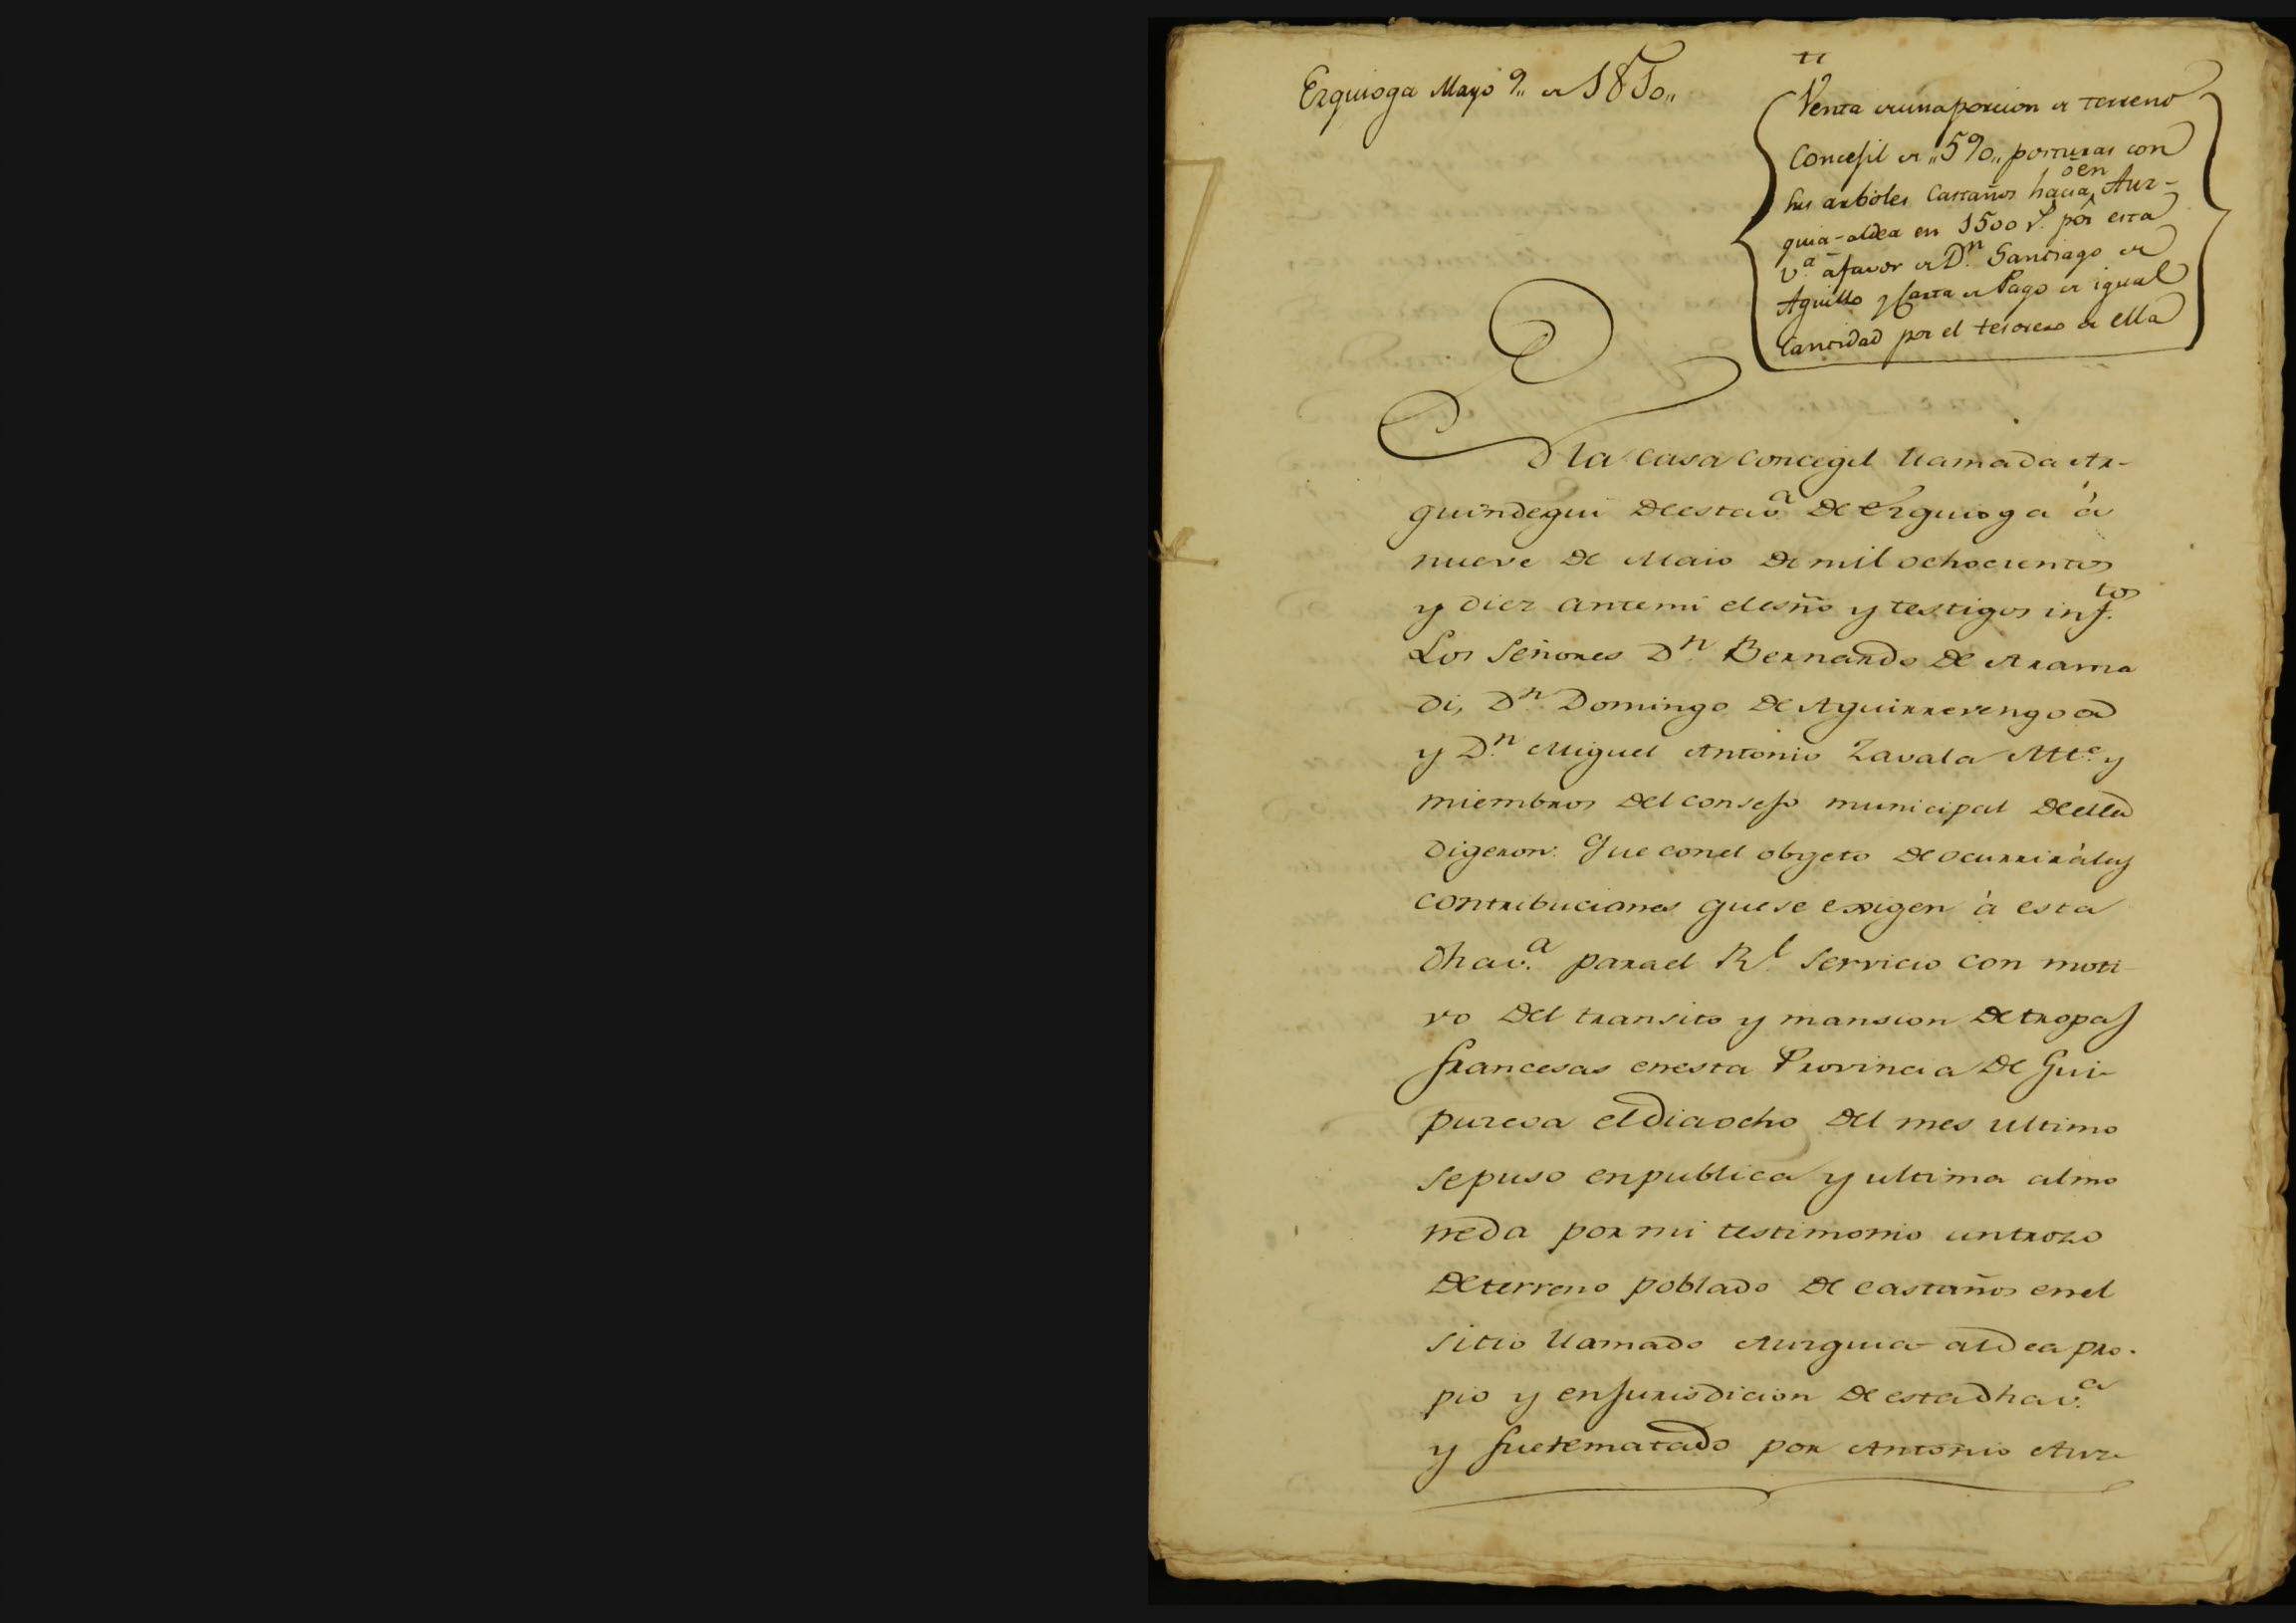 Ezquioga Mayo 9,, de 1810,,
Venta de una porcion de terreno
Concejil de ,,590,, posturas con
sus arboles castaños hacia ô en Aur-
quia-aldea en 1500 r.s por esta
V.a â favor de D.n Santiago de
Aguillo y Carta de Pago de igual
Cantidad por el tesorero de ella
En la casa concegil llamada Ar-
guindegui de esta v.a de Ezquioga à
nueve de Maio de mil ochocientos
y diez ante mi el esño y testigos inf.tos
Los Señores D.n Bernardo de Arama
di, D.n Domingo de Aguirrevengoa
y D.n Miguel Antonio Zavala Alc.e y
miembros del consejo municipal de ella
digeron: Que con el obgeto de ocurrir à las
contribuciones que se exigen à esta
dha v.a para el R.l servicio con moti
vo del transito y mansion de tropas
francesas en esta Provincia de Gui-
puzcoa el dia ocho del mes ultimo
se puso en publica y ultima almo
neda por mi testimonio un trozo
de terreno poblado de castaños en el
sitio llamado Aurquia-aldea pro-
pio y en Jurisdicion de esta dha v.a
y fue rematado por Antonio Aur-